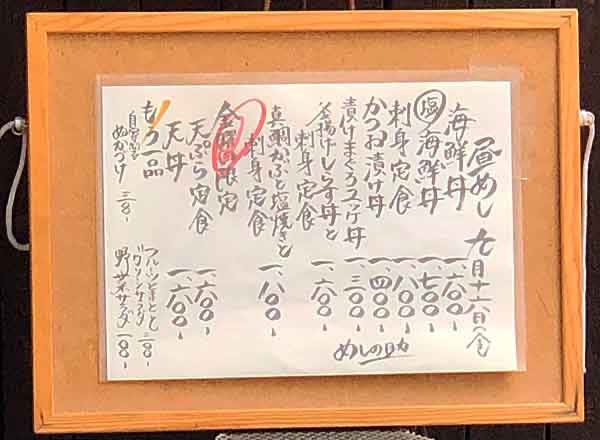 昼めし 九月十六日(金)
海鮮丼 一、六〇〇-
塩 海鮮丼 一、七〇〇-
刺身定食 一、八〇〇-
かつお漬け丼 一、四〇〇-
漬けまぐろユッケ丼 一、三〇〇-
釜揚げしらす丼と
刺身定食 一、六〇〇-
真鯛かぶと塩焼きと
刺身定食 一、八〇〇-
金曜日限定
天ぷら定食 一、六〇〇-
天丼 一、六〇〇-
もう一品
自家製
ぬかづけ 三〇〇-
フルーツとまとと
野菜サラダ
めしの助